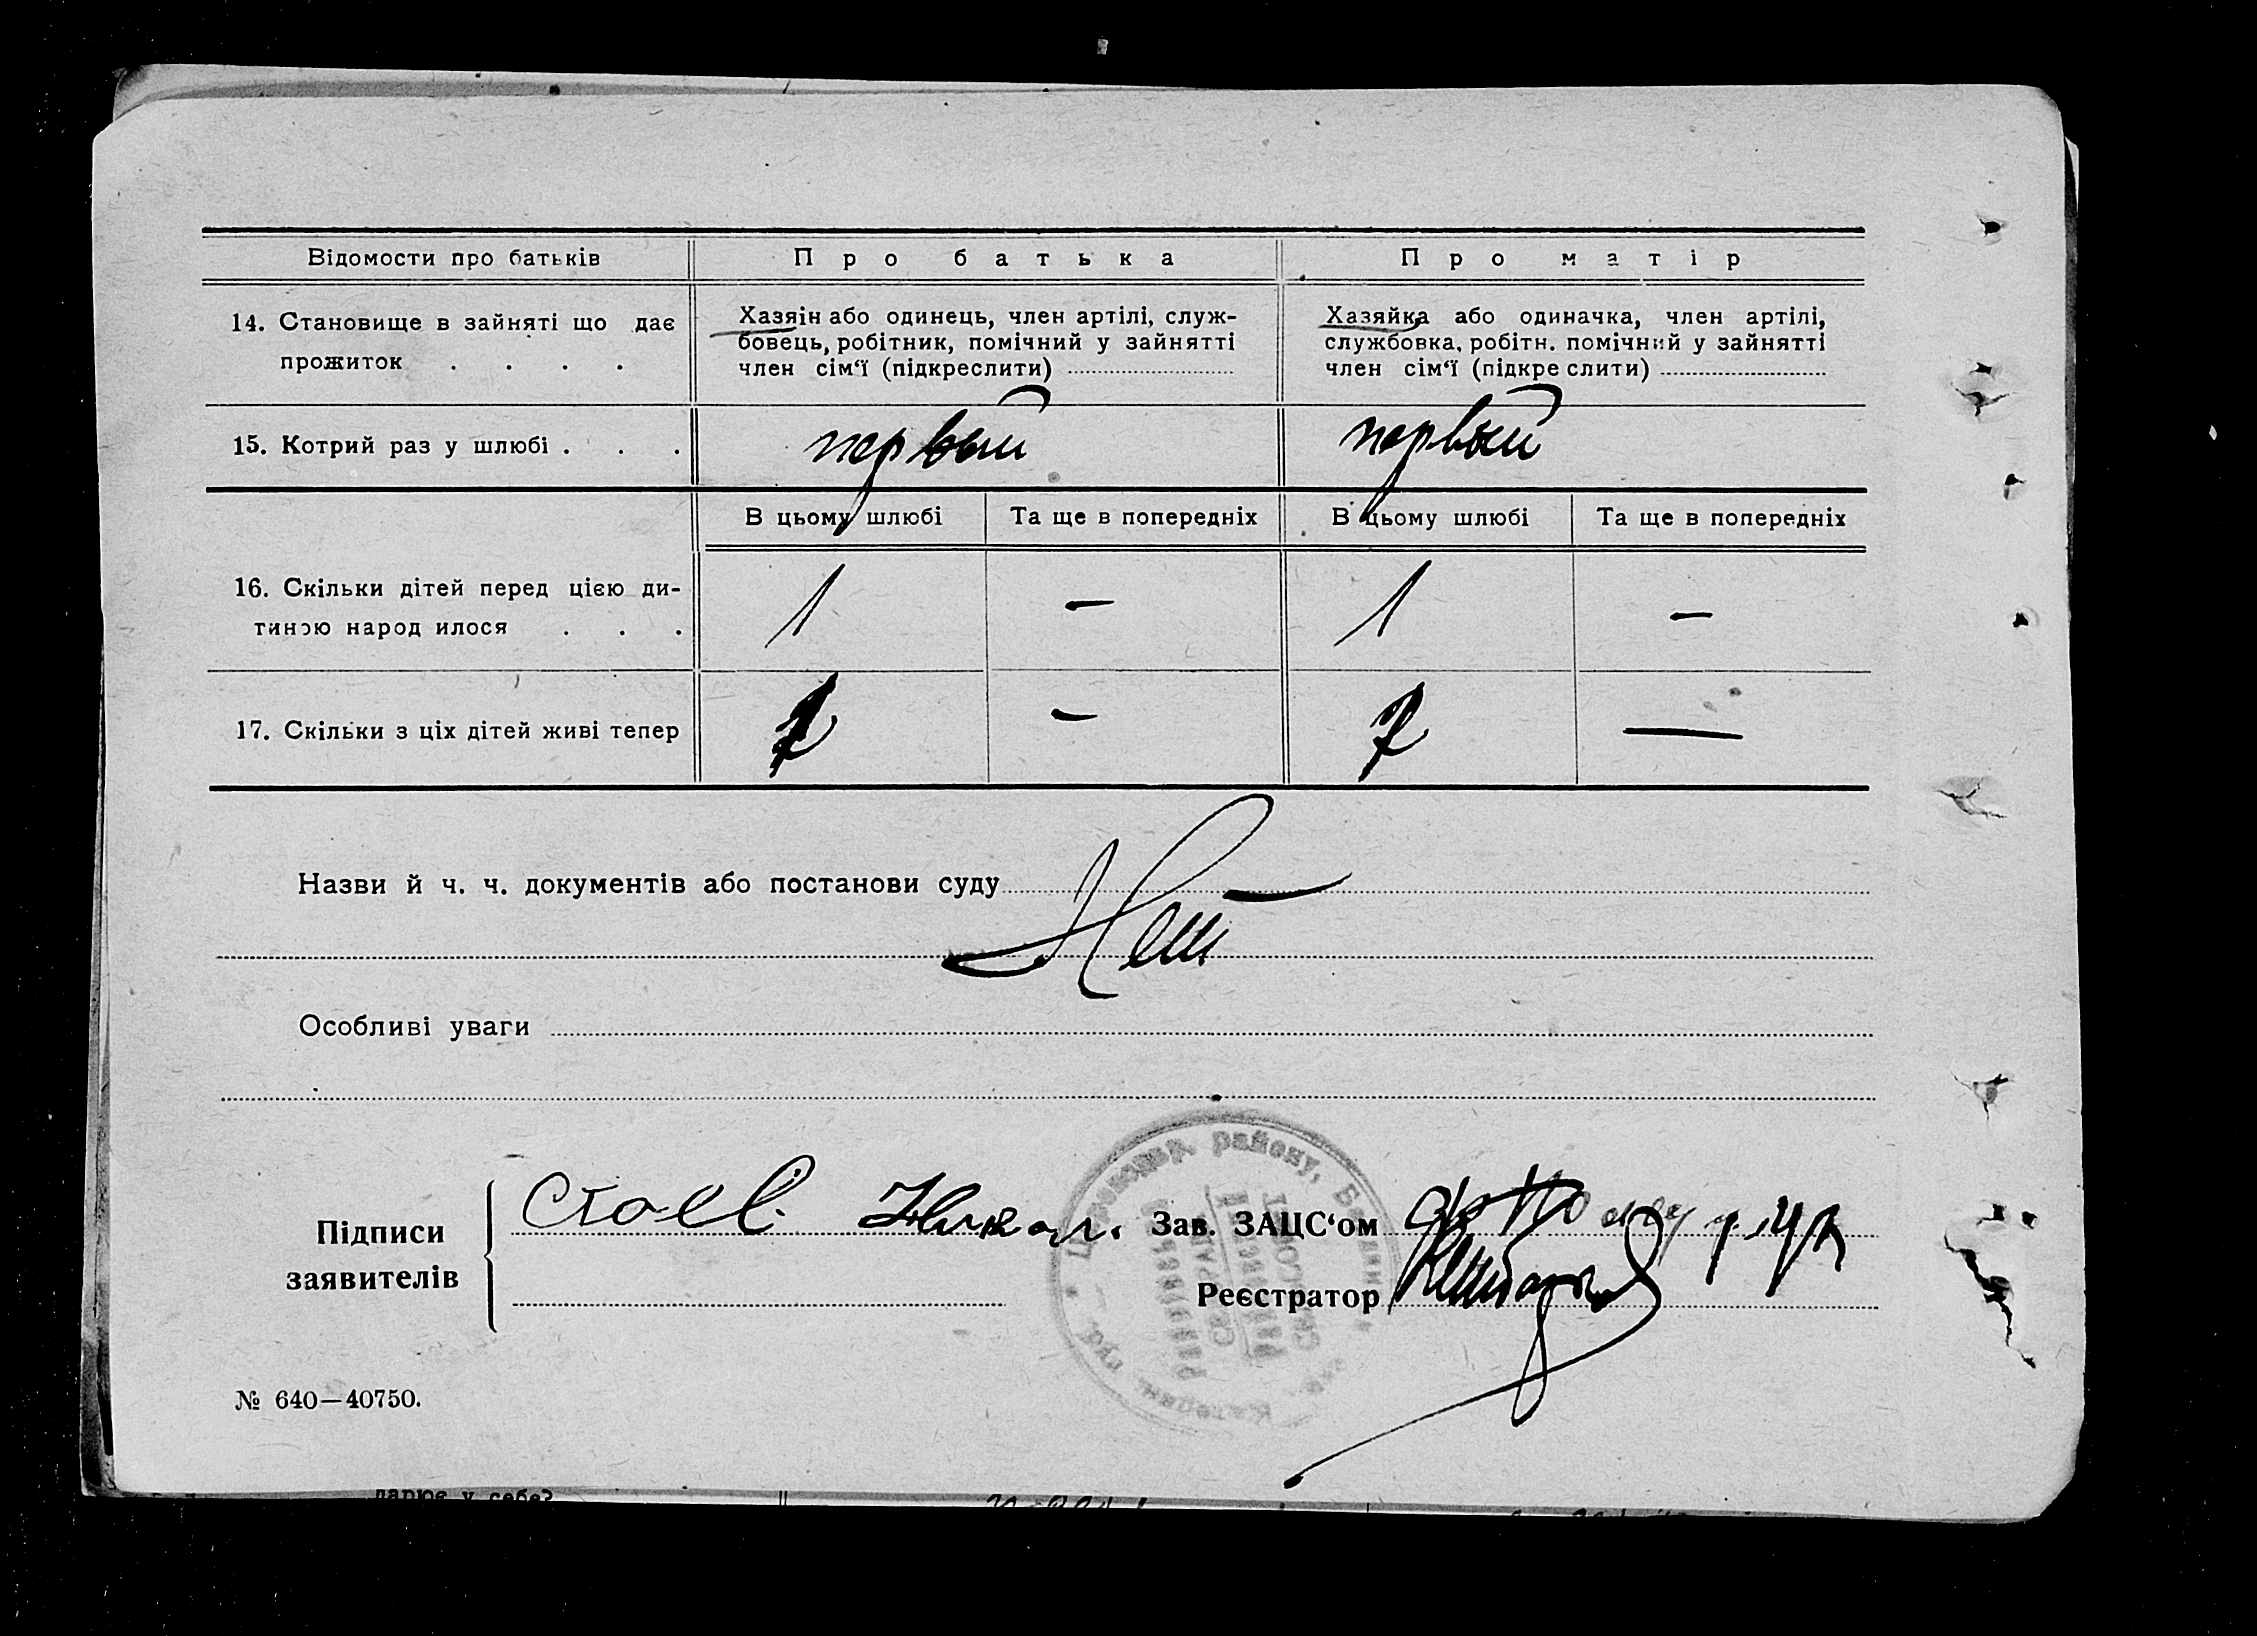 Відомости про батьків
Про батька
Про матір
14. Становище в зайняті що дає
прожиток . . . .
Хазяїн або одинець, член артілі, служ-
бовець, робітник, помічний у зайнятті
член сім‘ї (підкреслити)
Хазяйка або одиначка, член артілі,
службовка, робітн. помічний у зайнятті
член сім‘ї (підкреслити)
15. Котрий раз у шлюбі . . .
первый
первый
В цьому шлюбі
Та ще в попередніх
В цьому шлюбі
Та ще в попередніх
16. Скільки дітей перед цією ди-
тиною народилося . . .
1
–
1
–
17. Скільки з ціх дітей живі тепер
–
—
Назви й ч. ч. документів або постанови суду
Нет
Особливі уваги
Підписи
заявителів
Зав. ЗАЦС‘ом
Реєстратор
району,
№ 640—40750.
дарює у себе?